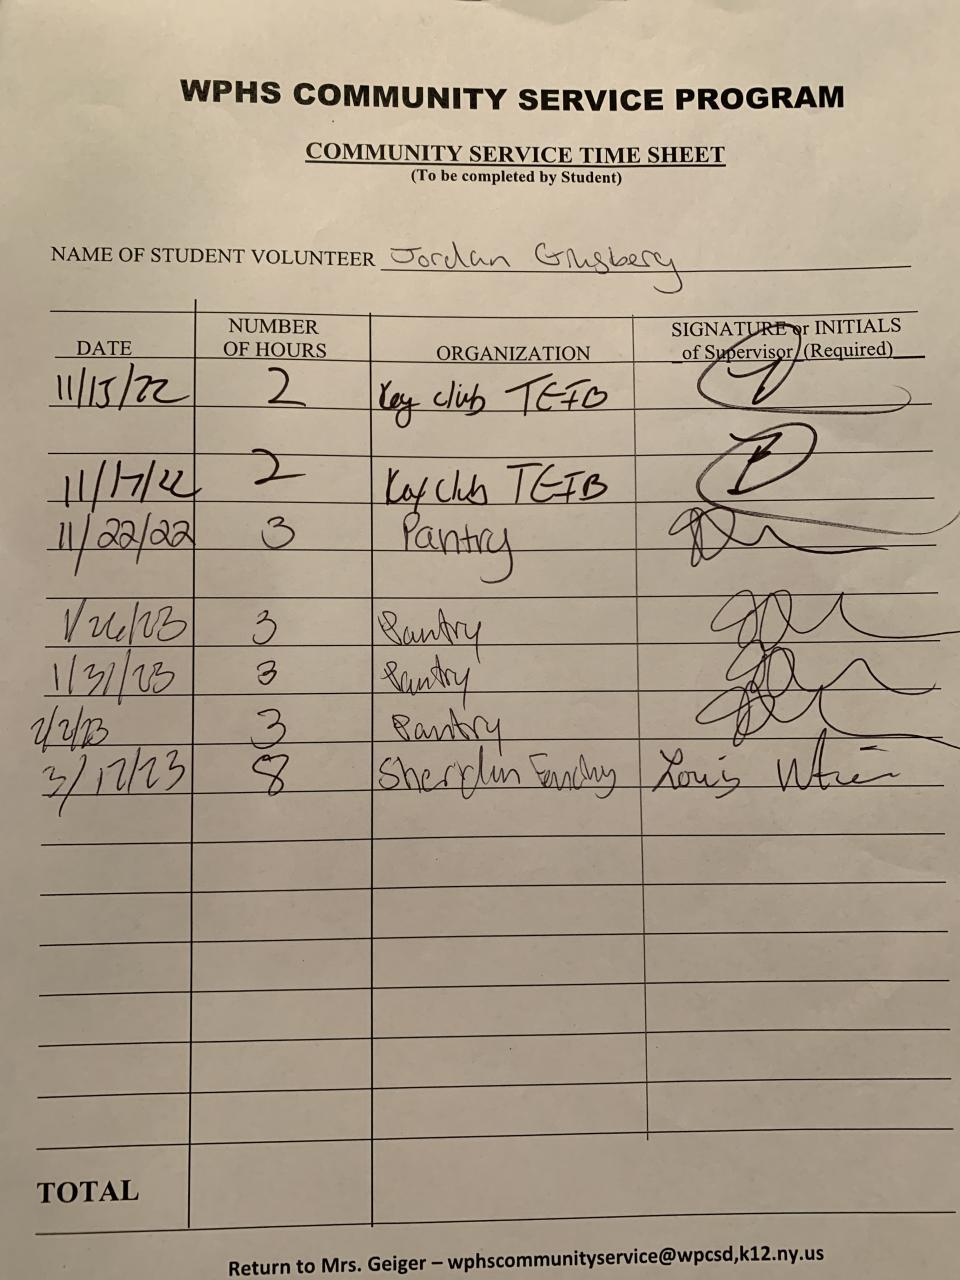 WPHS COMMUNITY SERVICE PROGRAM
COMMUNITY SERVICE TIME SHEET
(To be completed by Student)
NAME OF STUDENT VOLUNTEER Jordan Ginsberg
DATE NUMBER OF HOURS ORGANIZATION SIGNATURE or INITIALS of Supervisor (Required)
11/15/22 2 Key club TEIB
11/17/22 2 Key Club TEIB
11/22/22 3 Pantry
1/26/23 3 Pantry
1/31/23 3 Pantry
2/2/23 3 Pantry
3/12/23 8 Louis
TOTAL
Return to Mrs. Geiger – wphscommunityservice@wpcsd,k12.ny.us